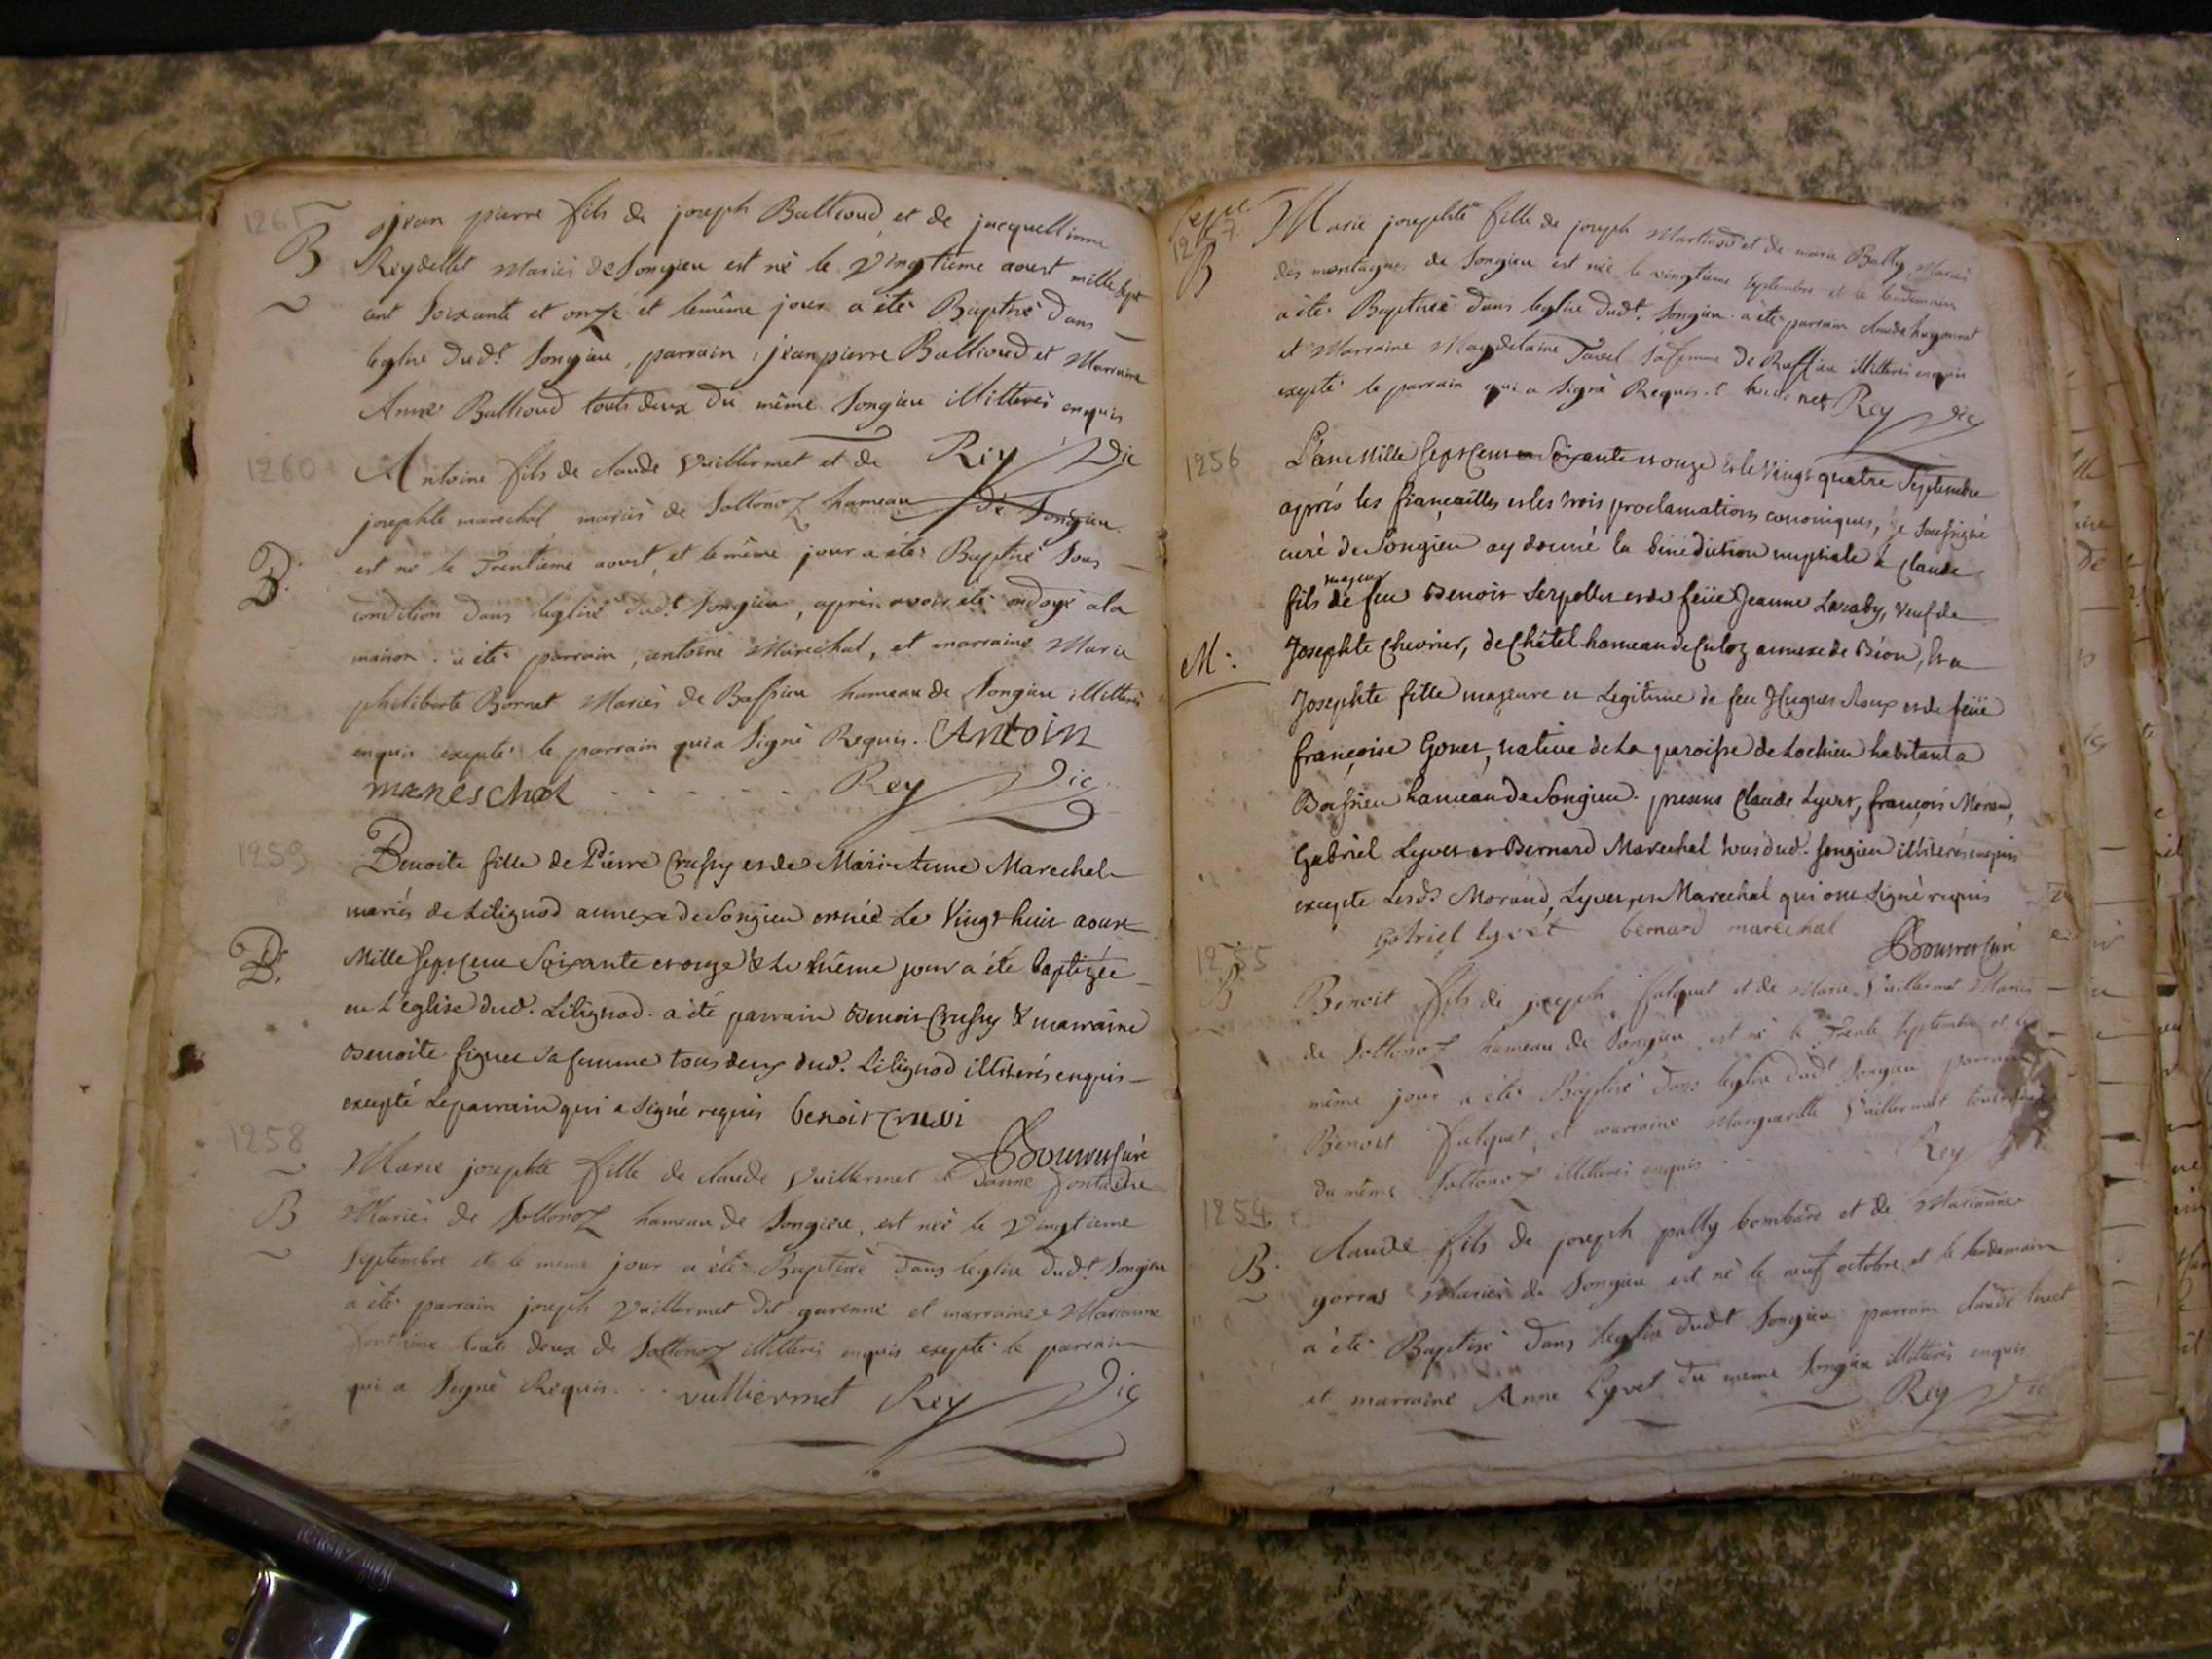 1261
B
jean pierre fils de joseph Ballioud et de jacquellinne
Reydellet Mariés de Songieu est né le vingtieme aoust mille sept
cent Soixante et onze et lemême jour a été Baptisé dans
leglise dudt. Songieu, parrain, jean pierre Ballioud et Marraine
Anne Ballioud touts deux du même Songieu illitterés enquis
Rey Vic
1260
Antoine fils de claude Vuillermet et de
josephte marechal mariés de Sottonoz hameau de Songieu
B.
est né le Trentieme aoust, et lemême jour a été Baptisé Sous
condition dans leglise dudt. Songieu, après avoir été ondoyé ala
maison. a été parrain, antoine Maréchal, et marraine Marie
philiberte Bornet Mariés de Bassieu hameau de Songieu illitterés
enquis exepté le parrain qui a Signé Requis. Antoin
mareschal Rey Vic
1259
Benoite fille de Pierre Crussy et de Marie Anne Marechal
mariés de Lilignod annexe de Songieu est née Le Vingt huit aoust
B.
Mille Sept Cent Soixante et onze & Le même jour a été baptizée
en L'église dud. Lilignod. a été parrain Benoit Crussy & marraine
Benoite figuet sa femme tous deux dud. Lilignod illiterés enquis
excepté Le parrain qui a signé requis benoit Crussi
Bouvret Curé
1258
Marie josephte fille de claude Vuillermet et Danne fontaine
B
Mariés de Sottonoz hameau de Songieu, est née le Vingtieme
Septembre et le meme jour a été Baptisée dans leglise dudt. Songieu
a été parrain joseph Vuillermet dit garenne et marraine Marianne
fontaine tout deux de Sottonoz illitterés enquis exepté le parrain
qui a Signé Requis. vulliermet Rey Vic
1257
B
Marie josephte fille de joseph Martinod et de marie Bally Mariés
des montagnes de Songieu est née le vingtieme Septembre et le lendemain
a été Baptisée dans leglise dudt. Songieu. a été parrain claude hugonnet
et Marraine Magdelaine Tavel Sa femme de Ruffieu illitterés enquis
exepté le parrain qui a Signé Requis. Rey Vic
1256
L'an Mille Sept Cent Soixante et onze & le Vingt quatre Septembre
après les fiançailles et les trois proclamations canoniques, je Soussigné
curé de Songieu ay donné la bénédiction nuptiale à Claude
majeur
fils de feu Benoit Serpollet et de feüe Jeanne Laraby, veuf de
M.
Josephte Chevrier, de Châtel hameau de Culoz annexe de Béon, & a
Josephte fille majeure et Legitime de feu Hugues Roux et de feüe
françoise Gonet, native de La paroisse de Lochieu habitant a
Bassieu hameau de Songieu. presens Claude Lyvet, françois Morand,
Gabriel Lyvet et Bernard Marechal tous dud. Songieu illiterés enquis
excepte Lesds. Morand, Lyvet, et Marechal qui ont signé requis
gabriel lyvet bernard marechal
Bouvret Curé
1255
B
Benoit fils de joseph falquet et de Marie Vuillermet Mariés
de Sottonoz hameau de Songieu est né le Trente Septembre et le
même jour a été Baptisé dans leglise dudt Songieu parrain
Benoit falquet, et marraine Marguerite Vuillermet
du même Sottonoz illitterés enquis Rey
1254
B.
claude fils de joseph pally bombard et de Marianne
gorras Mariés de Songieu est né le neuf octobre et le lendemain
a été Baptisé dans leglise dudt Songieu parrain claude
et marraine Anne Lyvet du meme Songieu illitterés enquis
Rey Vic